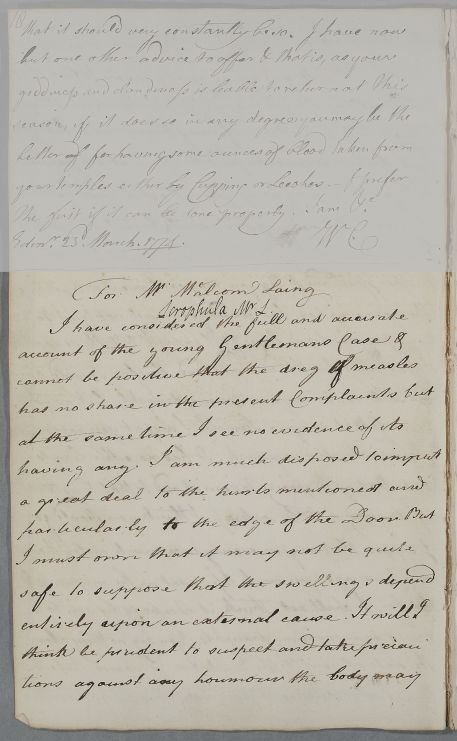 that it should very constantly be so. I have now
but one other advice to offer & that is, as your
giddiness and dimdness is leable to return at this
season, if it does so in any degree you may be the
better of for having some ounces of blood taken from
your temples either by Cupping or Leeches - I prefer
the first if it can be done properly. I am &c
Edinr. 23d. March. 1774. W C
For Mr. Malcom Laing
Scrophula Mr L
I have considered the full and accurate
account of the young Gentlemans Case &
cannot be positive that the dreg of measles
has no share in the present Complaints but
at the same time I see no evidence of its
having any. I am much disposed to impute
a great deal to the hurts mentioned and
particularly to the edge of the Door. But
I must own that it may not be quite
safe to suppose that the swellings depend
entirely upon an external cause. It will I
think be prudent to suspect and take precau
tions against any houmour the body may